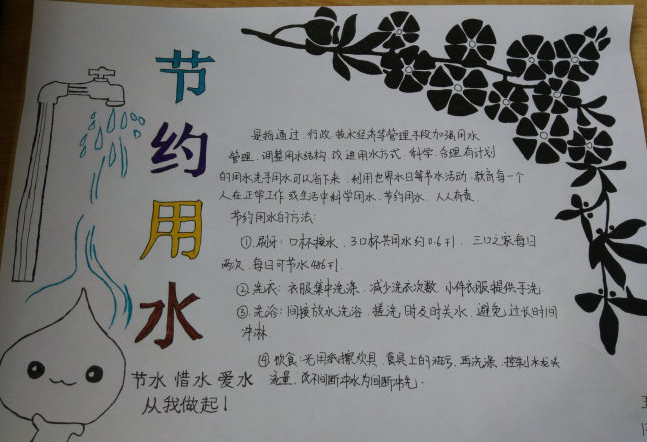 节约用水
是指通过行政、技术经济等管理手段加强用水
管理,调整用水结构,改进用水方式,科学、合理、有计划
的用水,洗手用水可以省下来,利用世界水日等节水活动,教育每一个
人在正常工作或生活中科学用水,节约用水,人人有责。
节约用水的方法:
①.刷牙:口杯接水,3口杯共用水约0.6升,三口之家每日
两次,每日可节水486升.
②.洗衣:衣服集中洗涤,减少洗衣次数,小件衣服提供手洗
③.洗浴:间接放水洗浴,搓洗时及时关水,避免过长时间
冲淋.
④.饮食:先用纸擦炊具、食具上的油污,再洗涤,控制水龙头
流量,改不间断冲水为间断冲洗.
节水 惜水 爱水
从我做起!